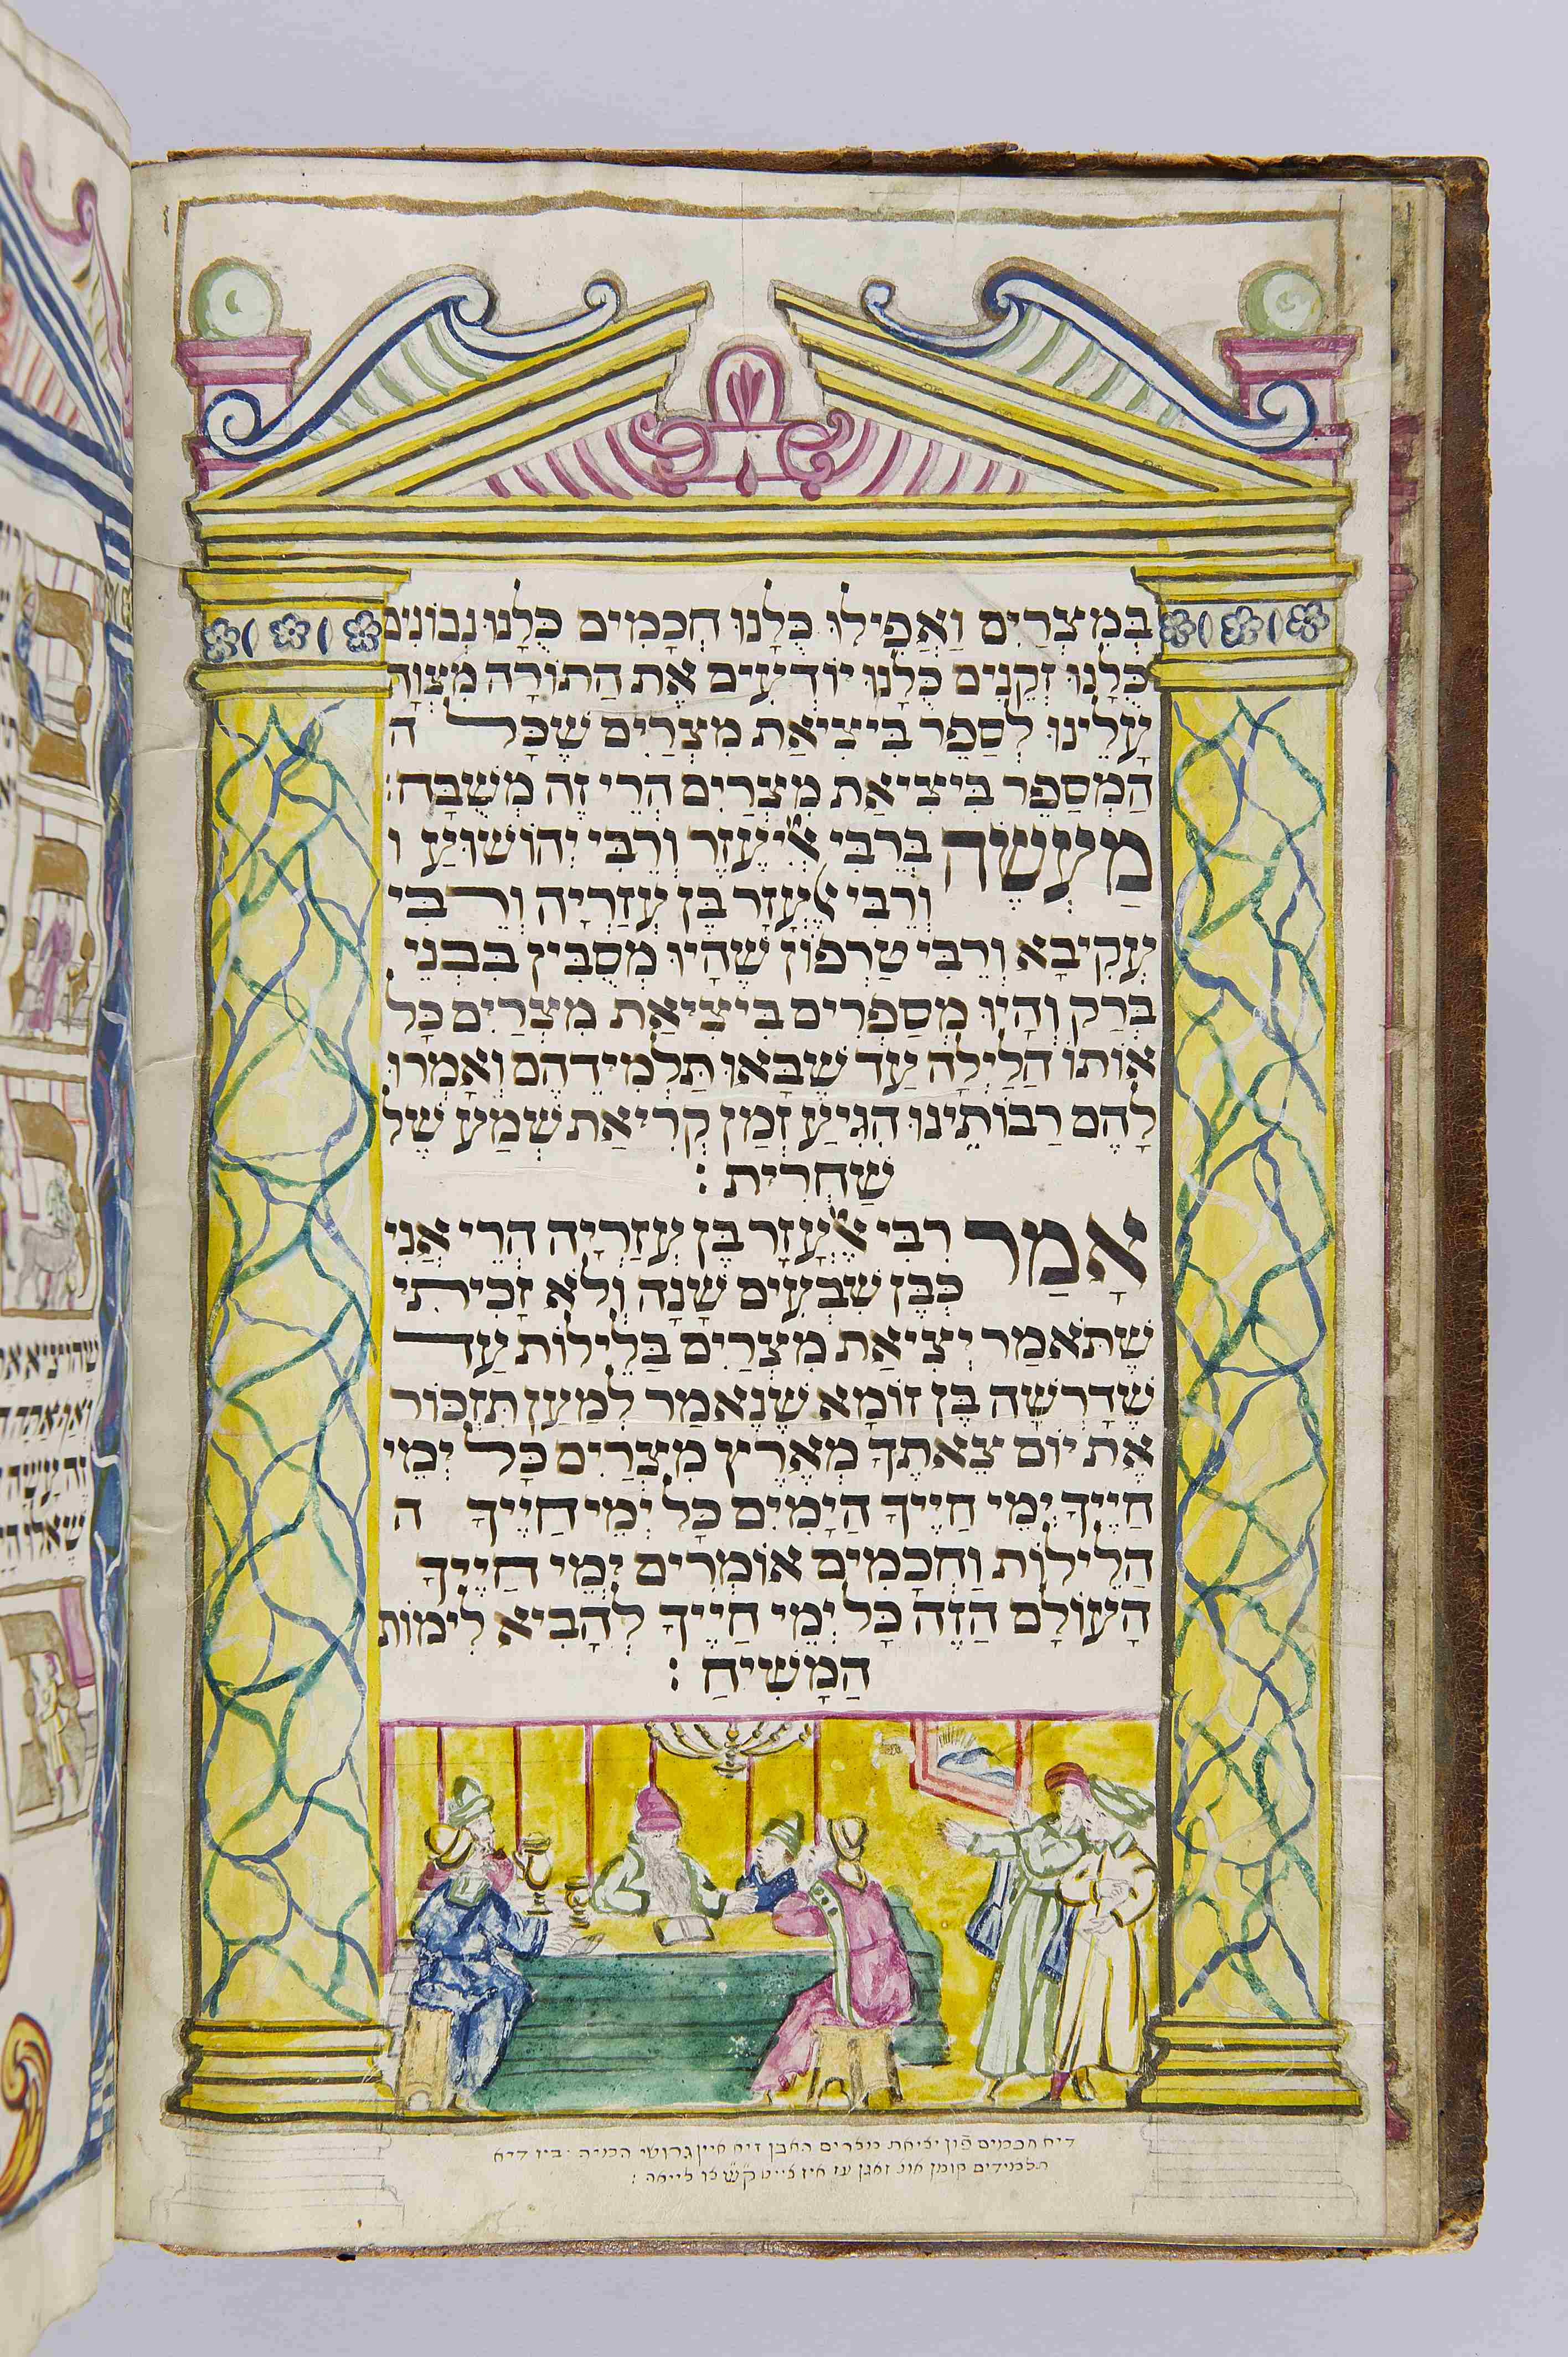 בְּמִצְרַיִם וַאֲפִילוּ כֻּלָּנוּ חֲכָמִים כֻּלָּנוּ נְבוֹנִים
כֻּלָּנוּ זְקֵנִים כֻּלָּנוּ יוֹדְעִים אֶת הַתּוֹרָה מִצְוָה
עָלֵינוּ לְסַפֵּר בִּיצִיאַת מִצְרַיִם שֶׁכָּל ה
הַמְסַפֵּר בִּיצִיאַת מִצְרַיִם הֲרֵי זֶה מְשֻׁבָּח:
מַעֲשֶׂה בְּרַבִּי אֱלִיעֶזֶר וְרַבִּי יְהוֹשׁוּעַ ו
וְרַבִּי אֶלְעָזָר בֶּן עֲזַרְיָה וְרַבִּי
עֲקִיבָא וְרַבִּי טַרְפוֹן שֶׁהָיוּ מְסֻבִּין בִּבְנֵי
בְּרַק וְהָיוּ מְסַפְּרִים בִּיצִיאַת מִצְרַיִם כָּל
אוֹתוֹ הַלַּיְלָה עַד שֶׁבָּאוּ תַּלְמִידֵהֶם וְאָמְרוּ
לָהֶם רַבּוֹתֵינוּ הִגִּיעַ זְמַן קְרִיאַת שְׁמַע שֶׁל
שַׁחֲרִית :
אָמַר רַבִּי אֶלְעָזָר בֶּן עֲזַרְיָה הֲרֵי אֲנִי
כְּבֶן שִׁבְעִים שָׁנָה וְלֹא זָכִיתִי
שֶׁתֹּאמַר יְצִיאַת מִצְרַיִם בַּלֵּילוֹת עַד
שֶׁדְּרָשָׁהּ בֶּן זוֹמָא שֶׁנֶּאֱמַר לְמַעַן תִּזְכּוֹר
אֶת יוֹם צֵאתְךָ מֵאֶרֶץ מִצְרַיִם כָּל יְמֵי
חַיֶּיךָ יְמֵי חַיֶּיךָ הַיָּמִים כָּל יְמֵי חַיֶּיךָ ה
הַלֵּילוֹת וַחֲכָמִים אוֹמְרִים יְמֵי חַיֶּיךָ
הָעוֹלָם הַזֶּה כָּל יְמֵי חַיֶּיךָ לְהָבִיא לִימוֹת
הַמָּשִׁיחַ :
דיא חכמים פֿון יציאת מצרים האבן זיא איין גרושי המיה . ביז דיא
תלמידים קומן אונ זאגן עז איז צייט ק״ש צו לייאה :